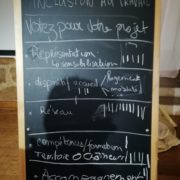 INCLUSION AU TRAVAIL
Votez pour votre projet
- Représentation
& sensibilisation
- dispositif accueil / logement
mobilité
- Réseau
- compétences/formation
Territoire O Chômeur
- Accompagnement